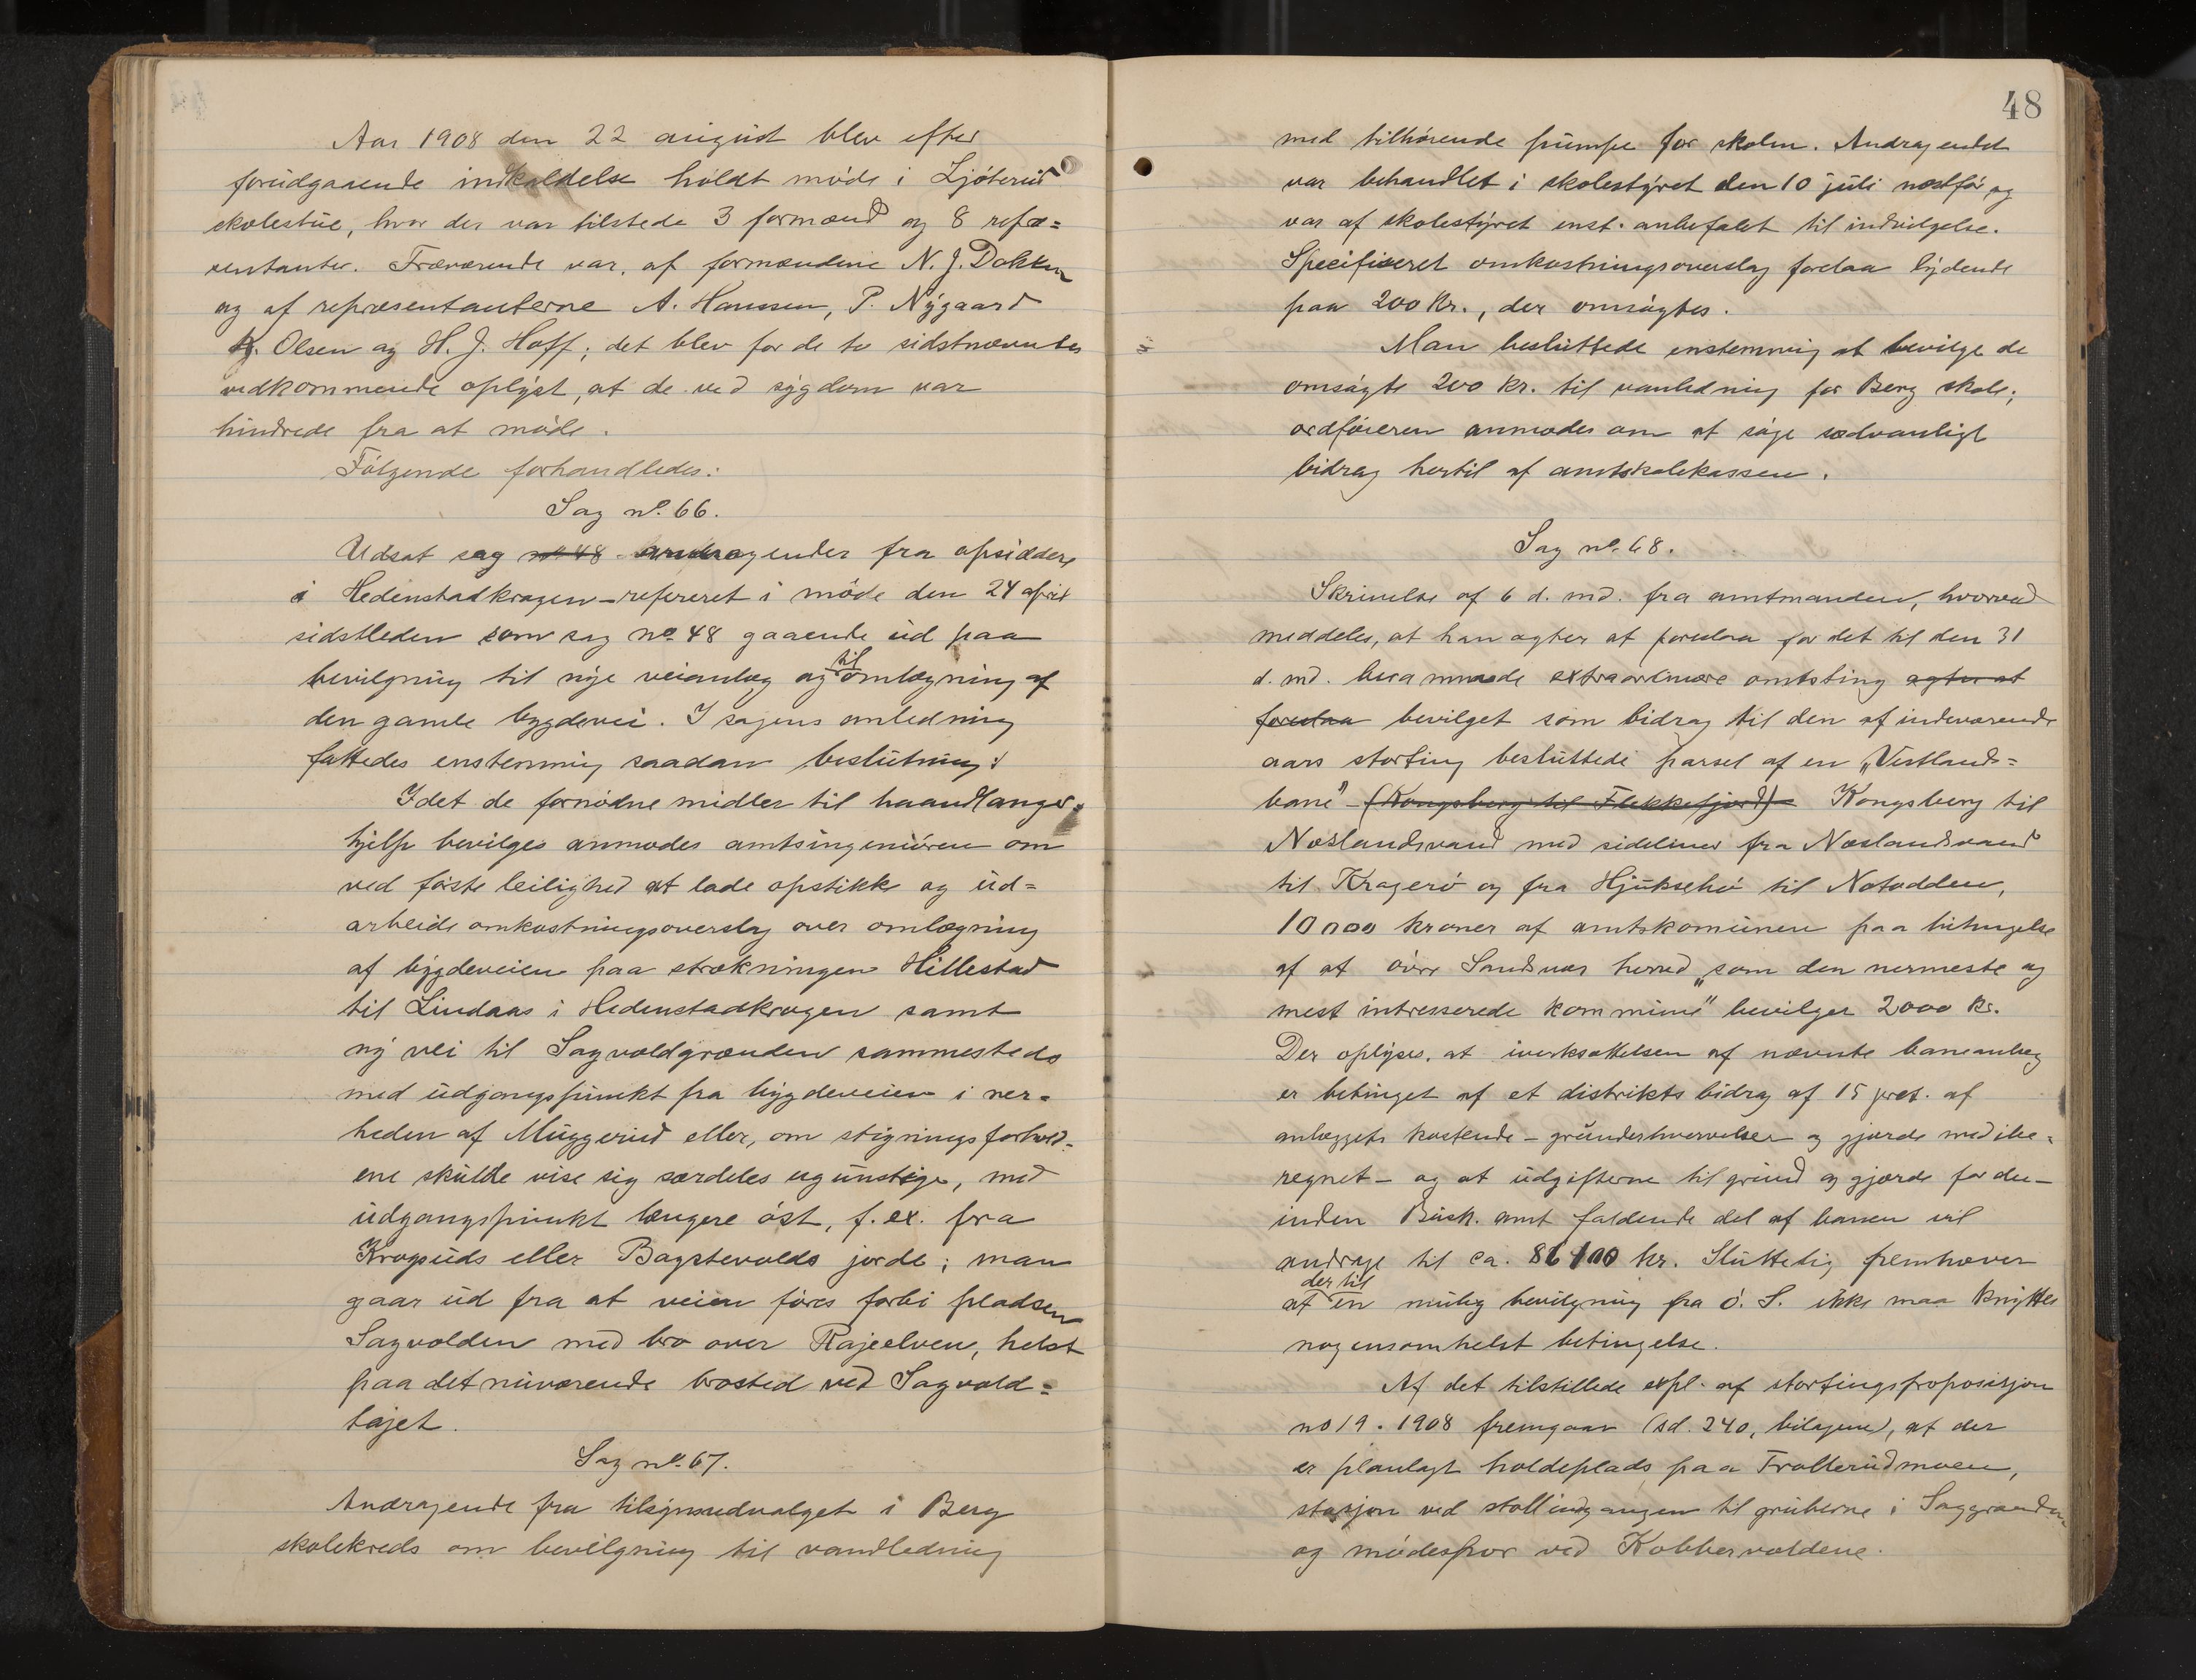 Aar 1908 den 22 august blev efter
forudgaaende indkaldelse holdt møde i Ljøterud
skolestue, hvor der var tilstede 3 formænd og 8 repræ=
sentanter. Fraværende var, af formændene N. J. Dokken
og af repræsentanterne A. Hanssen, P. Nygaard
K. Olsen og H. J. Hoff; det blev for de to sidstnævntes
vedkommende oplyst, at de ved sygdom var
hindrede fra at møde.
Følgende forhandledes:
Sag no. 66.
Udsat sag no 48 andragender fra opsiddere
i Hedenstadkragen - refereret i møde den 24 april
sidstleden som sag no 48 gaaende ud paa
bevilgning til nye veianlæg og til omlægning af
den gamle bygdevei. I sagens anledning
fattedes enstemmig saadan beslutning:
Idet de fornødne midler til haandlanger=
hjelp bevilges anmodes amtsingeniøren om
ved første leilighed at lade opstikke og ud=
arbeide omkostningsoverslag over omlægning
af bygdeveien paa strækningen Hillestad
til Lindaas i Hedenstadkragen samt
ny vei til Sagvoldgrænden sammesteds
med udgangspunkt fra bygdeveien i nær=
heden af Muggerud eller, om stigningsforhold=
ene skulde vise sig særdeles ugunstige, med
udgangspunkt længere øst, f. ex. fra
Kragsuds eller Bagstevolds jorde; man
gaar ud fra at veien føres forbi pladsen
Sagvolden med bro over Rajeelven, helst
paa det nuværende brosted ved Sagvold=
tajet.
Sag no. 67.
Andragende fra tilsynsudvalget i Berg
skolekreds om bevilgning til vandledning
48
med tilhørende pumpe for skolen. Andragendet
var behandlet i skolestyret den 10 juli næstfør, og
var af skolestyret enst. anbefalet til indvilgelse.
Specifiseret omkostningsoverslag forelaa lydende
paa 200 Kr., der omsøgtes.
Man besluttede enstemmig at bevilge de
omsøgte 200 kr. til vandledning for Berg skole;
ordføreren anmodes om at søge sædvanligt
bidrag hertil af amtskolekassen.
Sag no. 68.
Skrivelse af 6 d. md. fra amtmanden, hvorved
meddeles, at han agter at foreslaa for det til den 31
d. md. berammede extraordinære amtsting agter at
foreslaa bevilget som bidrag til den af indeværende
aars storting besluttede parsel af en „Vestlands=
bane" - (Kongsberg til Flekkefjord) - Kongsberg til
Næslandsvand med sidelinier fra Næslandsvand
til Kragerø og fra Hjuksebø til Notodden,
10000 kroner af amtskomunen paa betingelse
af at øvre Sandsvær herred „som den nermeste og
mest intresserede kommune" bevilger 2000 kr.
Der oplyses, at iverksættelsen af nævnte baneanlæg
er betinget af et distriktsbidrag af 15 prct. af
anlæggets kostende - grunderhvervelser og gjærde medibe=
regnet - og at udgifterne til grund og gjærde for den
inden Busk. amt faldende del af banen vil
andrage til ca. 86100 kr. Sluttelig fremhæver
at der til en mulig bevilgning fra ø. S. ikke maa knyttes
nogensomhelst betingelse.
Af det tilstillede expl. af stortingsproposisjon
no 19. 1908 fremgaar (sd. 240, bilagene), at der
er planlagt holdeplads paa Trollerudmoen,
stasjon ved stollindgangen til gruberne i Saggrænden
og mødespor ved Kobbervoldene.